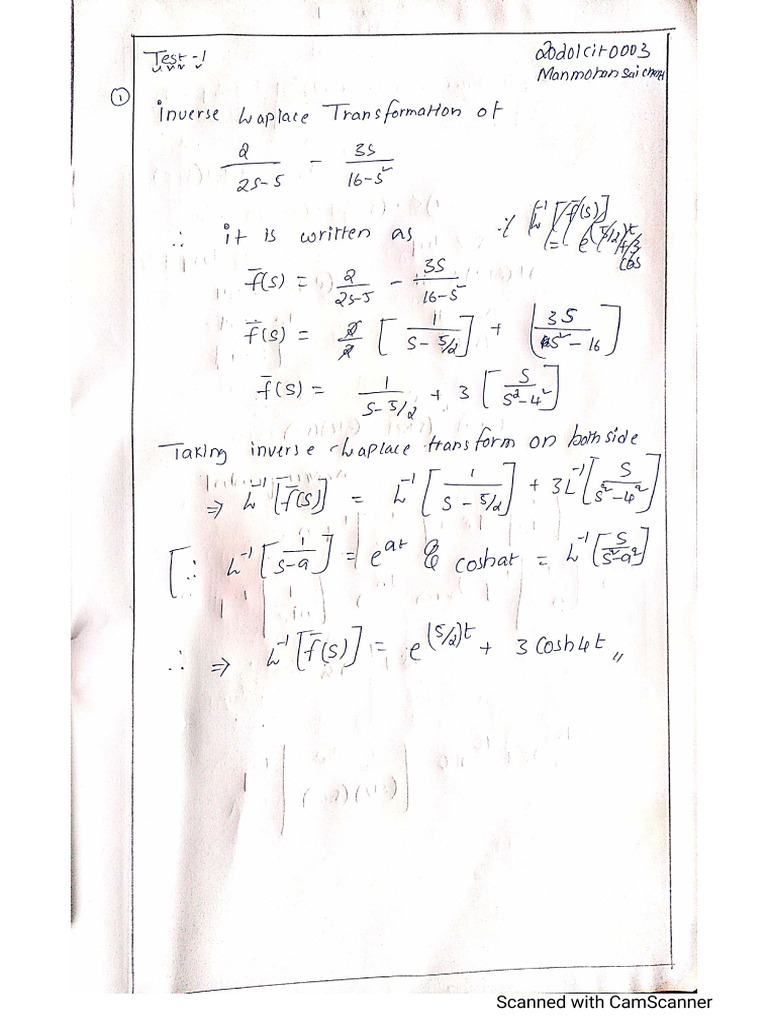 Test-1
20d01cit0003
Manmohan Sai
①
inverse Laplace Transformation of
2/(2s-5) - 3s/(16-s²)
∴ it is written as
f̄(s) = 2/(2s-5) - 3s/(16-s²)
f̄(s) = 2/2 [1/(s-5/2)] + [3s/(s²-16)]
f̄(s) = 1/(s-5/2) + 3 [s/(s²-4²)]
Taking inverse Laplace transform on both side
⇒ L⁻¹[f̄(s)] = L⁻¹[1/(s-5/2)] + 3L⁻¹[s/(s²-4²)]
[∴ L⁻¹[1/(s-a)] = e^(at) & coshat = L⁻¹[s/(s²-a²)]
∴ ⇒ L⁻¹[f̄(s)] = e^((5/2)t) + 3 cosh4t,,
Scanned with CamScanner